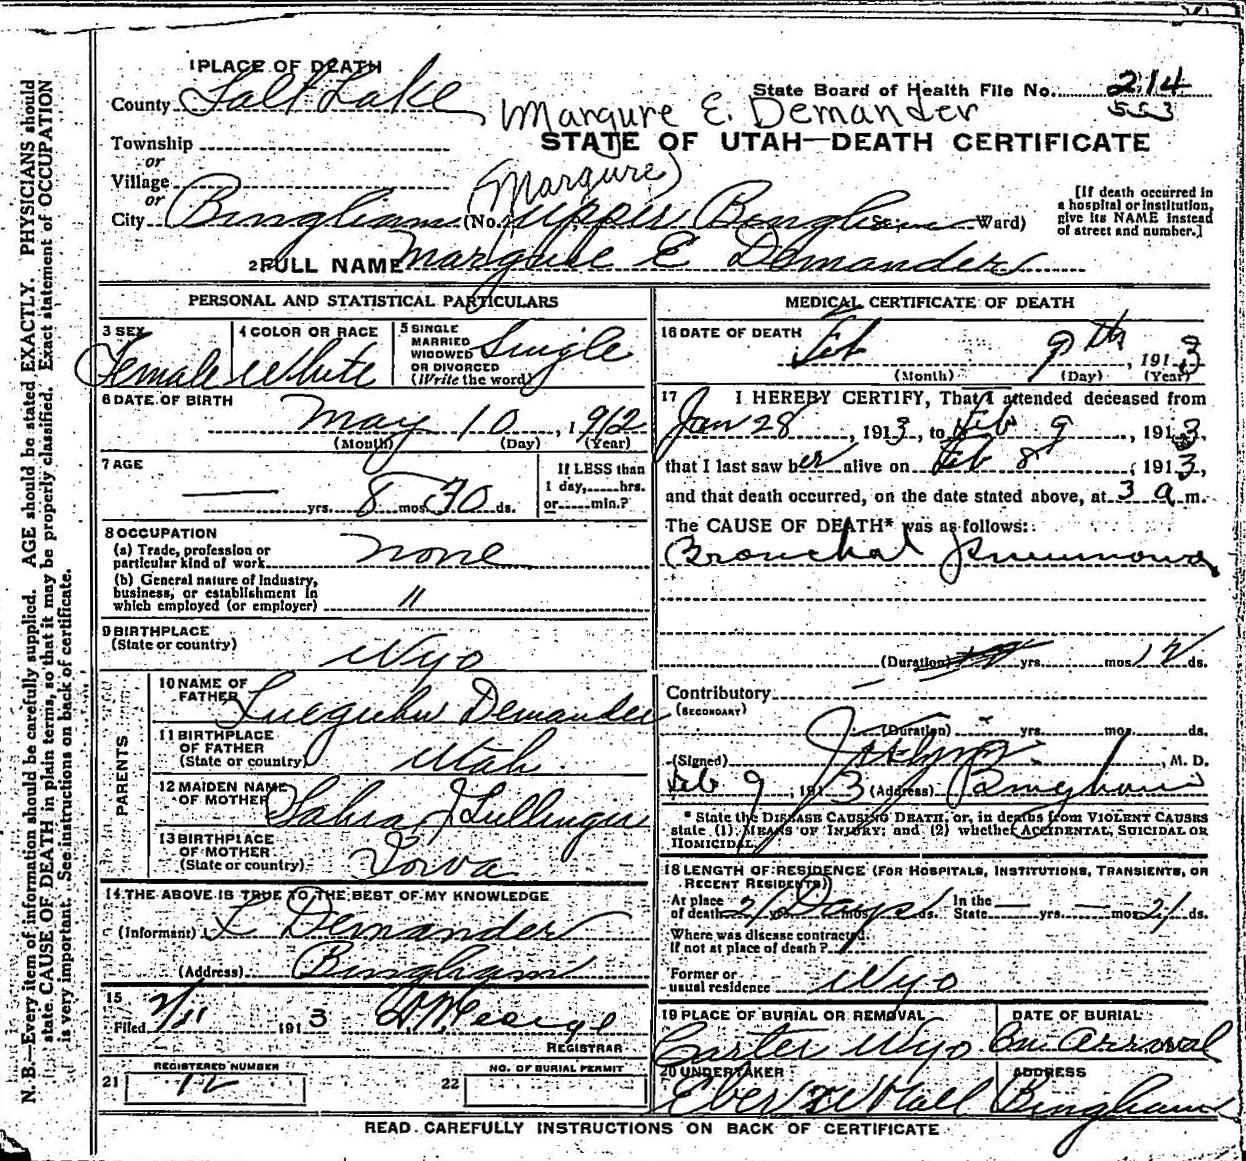 1 PLACE OF DEATH
County Salt Lake
State Board of Health File No. 214
553
Margure E. Demander
Township
STATE OF UTAH—DEATH CERTIFICATE
or
Village
(Margure)
or
City Bingham (No. Upper Bingham St. Ward)
[If death occurred in
a hospital or institution,
give its NAME instead
of street and number.]
2 FULL NAME Margure E Demander
PERSONAL AND STATISTICAL PARTICULARS
3 SEX Female
4 COLOR OR RACE White
5 SINGLE
MARRIED
WIDOWED
OR DIVORCED
(Write the word) Single
6 DATE OF BIRTH
May 10, 1912
(Month) (Day) (Year)
7 AGE
— yrs. 8 mos. 30 ds.
If LESS than
1 day, hrs.
or min.?
8 OCCUPATION
(a) Trade, profession or
particular kind of work none
(b) General nature of industry,
business, or establishment in
which employed (or employer) "
9 BIRTHPLACE
(State or country) Wyo
PARENTS
10 NAME OF
FATHER Demander
11 BIRTHPLACE
OF FATHER
(State or country) Utah
12 MAIDEN NAME
OF MOTHER J
13 BIRTHPLACE
OF MOTHER
(State or country) Iowa
14 THE ABOVE IS TRUE TO THE BEST OF MY KNOWLEDGE
(Informant) L Demander
(Address) Bingham
15
Filed 2/11 1913
REGISTRAR
21 REGISTERED NUMBER
12
22 NO. OF BURIAL PERMIT
MEDICAL CERTIFICATE OF DEATH
16 DATE OF DEATH
Feb 9th, 1913
(Month) (Day) (Year)
17 I HEREBY CERTIFY, That I attended deceased from
Jan 28, 1913, to Feb 9, 1913,
that I last saw her alive on Feb 8, 1913,
and that death occurred, on the date stated above, at 3 a m.
The CAUSE OF DEATH* was as follows:
Bronchal Pneumonia
(Duration) yrs. mos. 12 ds.
Contributory
(SECONDARY)
(Duration) yrs. mos. ds.
(Signed) , M. D.
Feb 9, 1913 (Address) Bingham
* State the DISEASE CAUSING DEATH, or, in deaths from VIOLENT CAUSES
state (1) MEANS OF INJURY; and (2) whether ACCIDENTAL, SUICIDAL OR
HOMICIDAL.
18 LENGTH OF RESIDENCE (FOR HOSPITALS, INSTITUTIONS, TRANSIENTS, OR
RECENT RESIDENTS)
At place
of death 21 yrs. Days mos. ds.
In the
State — yrs. — mos. 21 ds.
Where was disease contracted,
If not at place of death?
Former or
usual residence Wyo
19 PLACE OF BURIAL OR REMOVAL
Carter Wyo
DATE OF BURIAL
On Arroval
20 UNDERTAKER
Eber W Hall
ADDRESS
Bingham
READ CAREFULLY INSTRUCTIONS ON BACK OF CERTIFICATE
N. B.—Every item of information should be carefully supplied. AGE should be stated EXACTLY. PHYSICIANS should
state CAUSE OF DEATH in plain terms, so that it may be properly classified. Exact statement of OCCUPATION
is very important. See instructions on back of certificate.